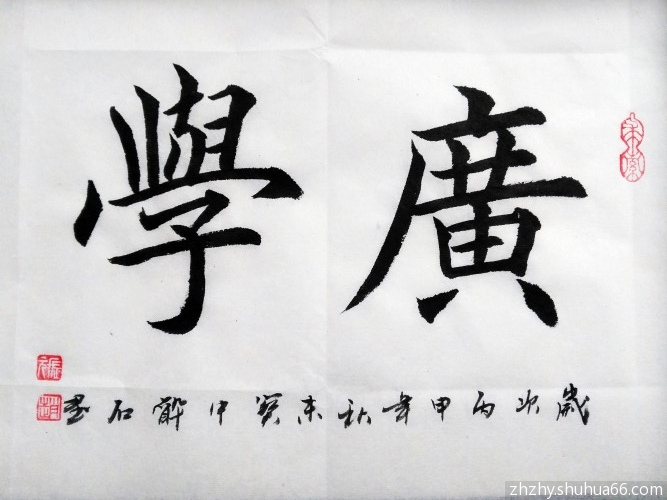 廣學
歲次丙申年秋末寶中石書
zhzhy.shuhua66.com